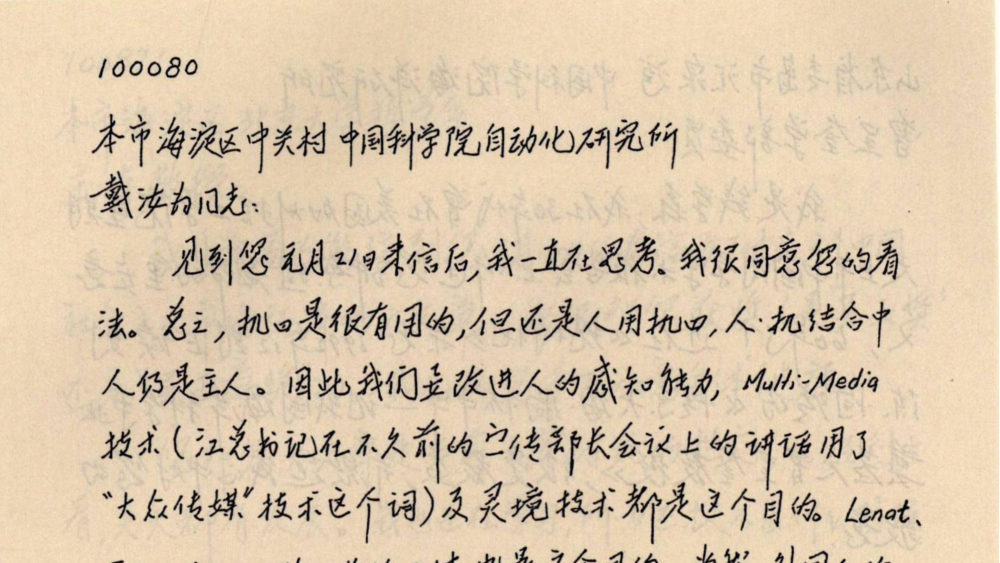 100080
本市海淀区中关村 中国科学院自动化研究所
戴汝为同志:
见到您元月21日来信后,我一直在思考。我很同意您的看
法。总之,机四是很有用的,但还是人用机四,人·机结合中
人仍是主人。因此我们要改进人的感知能力, Multi-Media
技术(江总书记在不久前的宣传部长会议上的讲话用了
“大众传媒”技术这个词)及灵境技术都是这个目的。Lenat、